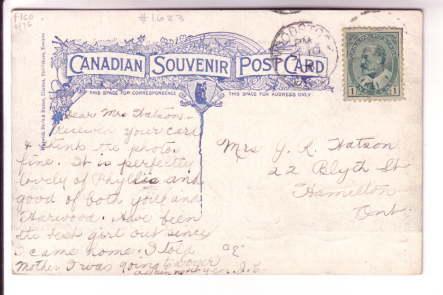 #1623
CANADIAN SOUVENIR POST CARD
THIS SPACE FOR CORRESPONDENCE
THIS SPACE FOR ADDRESS ONLY
Dear Mrs Hatson.
Received your card
& think the photos
fine. It is perfectly
lovely of Phyllis and
good of both you and
Harwood. Have been
the best girl out since
I came home. I told
Mother I was going to
Mrs Y. R. Hatson
22 Blyth St
Hamilton
Ont.
1 1